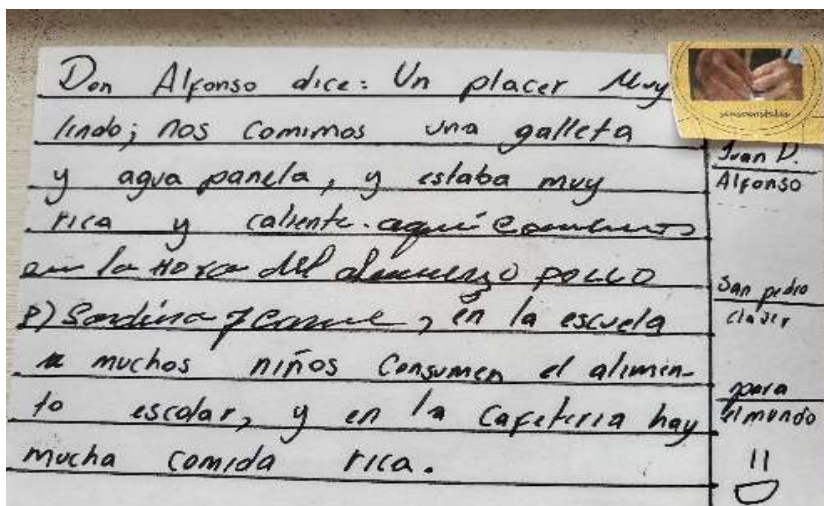 Don Alfonso dice: Un placer Muy
lindo; nos comimos una galleta
y agua panela, y estaba muy
rica y caliente. aquí comemos
en la Hora del almuerzo pollo
Sardina y carne, en la escuela
muchos niños consumen el alimen-
to escolar, y en la cafeteria hay
mucha comida rica.
Juan D.
Alfonso
San pedro
claver
para
el mundo